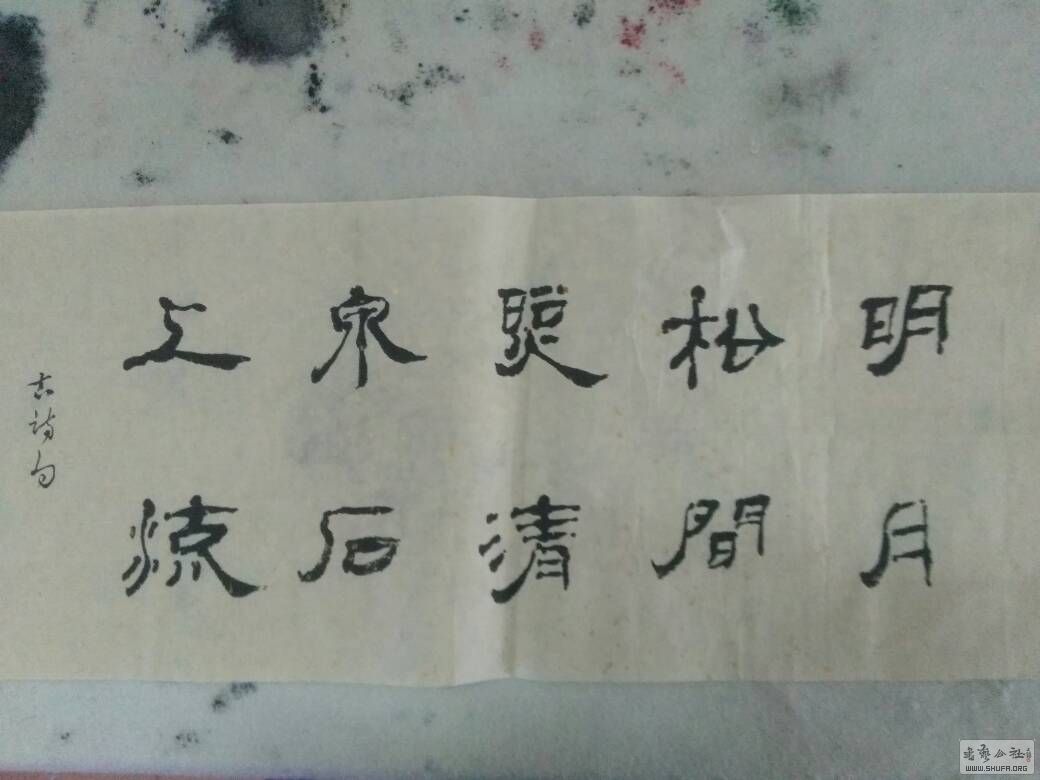 明月
松間
照清
泉石
上流
古诗句
書法公社
WWW.SHUFA.ORG